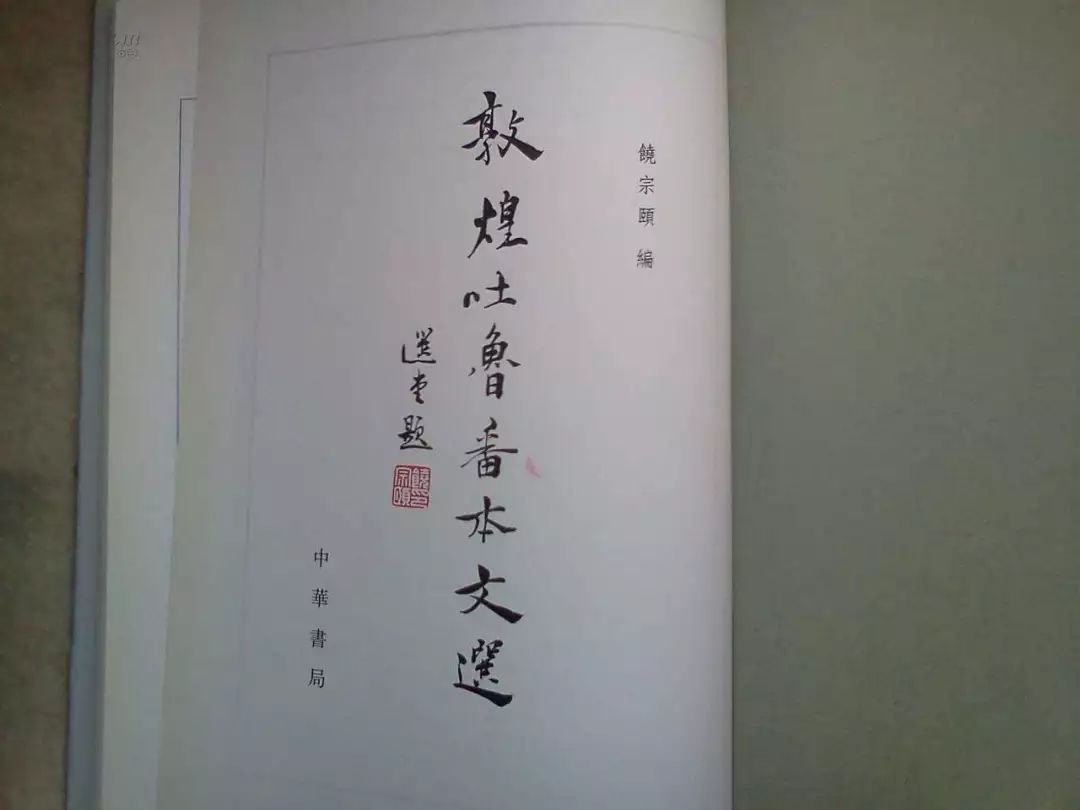 饒宗頤 編
敦煌吐魯番本文選
選堂題
饒宗頤印
中華書局